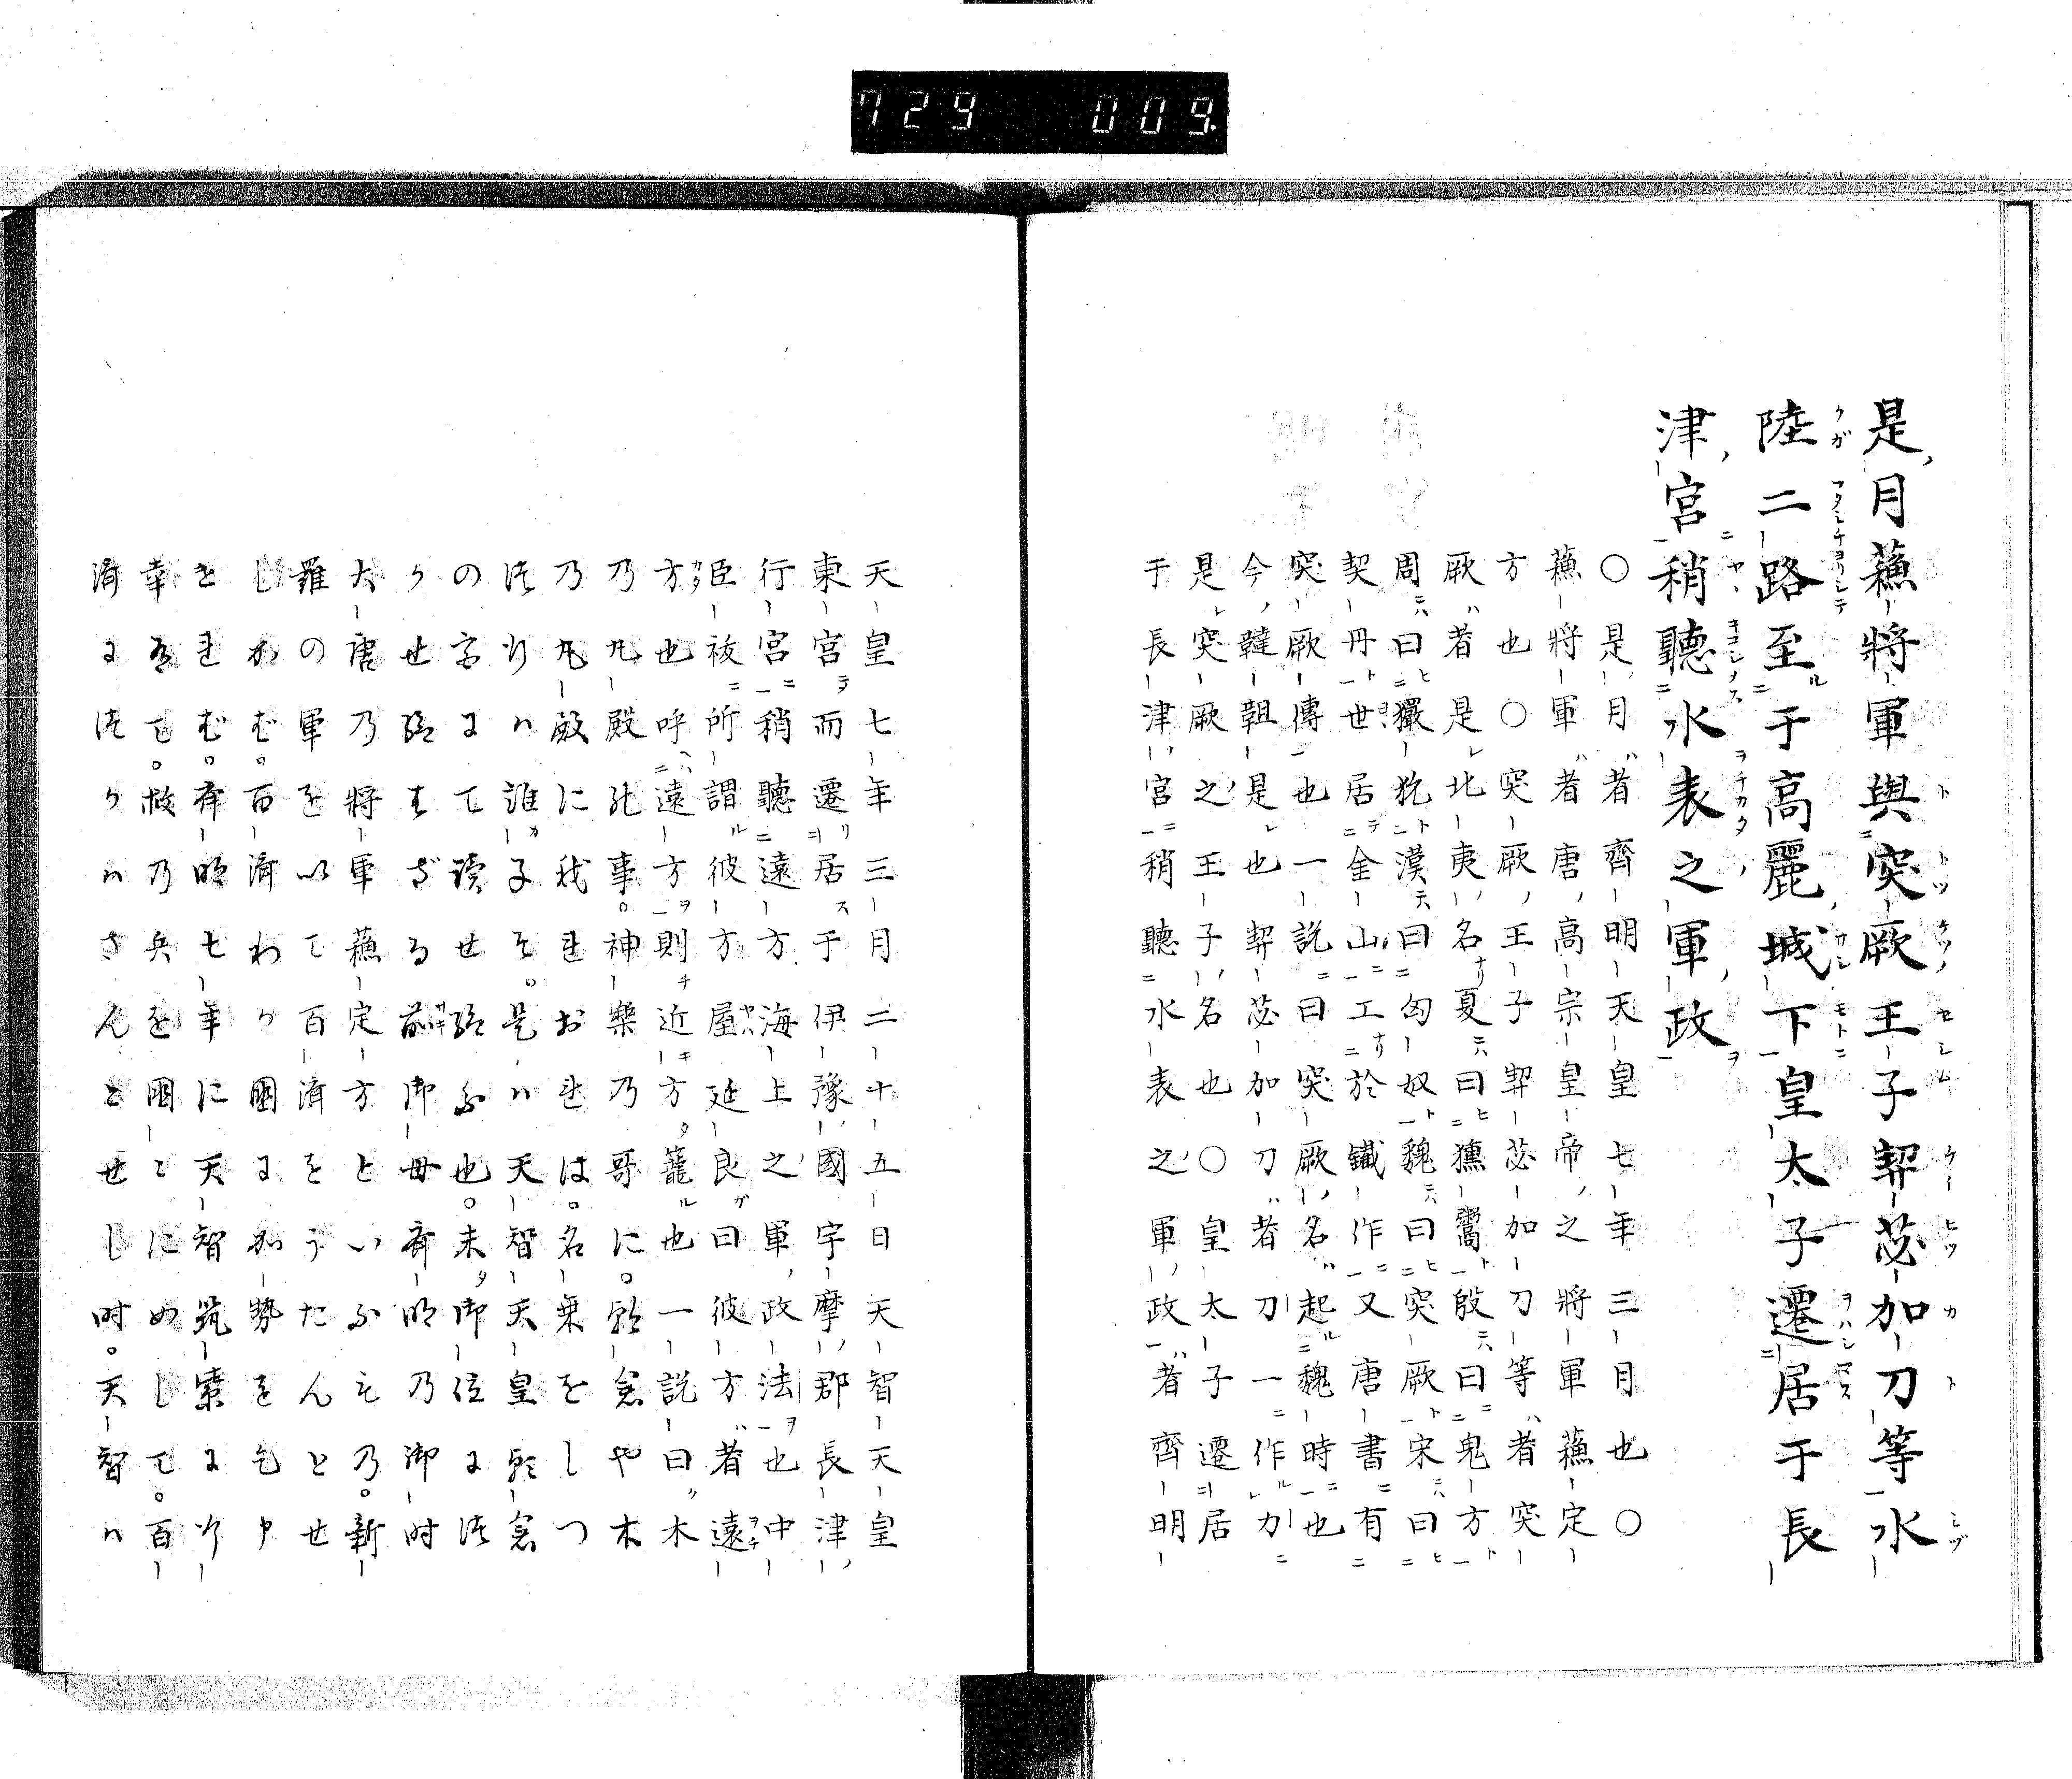 729 009
是月蘓將軍與突厥王子契苾加刀等水
陸二路至于高麗城下皇太子遷居于長
津宮稍聽水表之軍政
○是月者齊明天皇七年三月也○
蘓將軍者唐高宗皇帝之將軍蘓定
方也○突厥王子契苾加刀等者突
厥者是北夷名夏曰獯鬻殷曰鬼方
周曰玁狁漢曰匈奴魏曰突厥宋曰
契丹世居金山工於鐵作又唐書有
突厥傳也一說曰突厥名起魏時也
今韃靼是也契苾加刀者刀一作力
是突厥之王子名也○皇太子遷居
于長津宮稍聽水表之軍政者齊明
天皇七年三月二十五日天智天皇
東宮而遷居于伊豫國宇摩郡長津
行宮稍聽遠方海上之軍政法也中
臣祓所謂彼方屋延良曰彼方者遠
方也呼遠方則近方籠也一說曰木
乃丸殿乃事。神樂乃哥に。朝倉や木
乃丸殿に我まおれは。名乗をしつ
つ行ハ誰子そ。是ハ天智天皇朝倉
の字にて讀せ給ふ也。未御位につ
かせ給はざる前御母齊明乃御時
大唐乃將軍蘓定方といふもの。新
羅の軍を以て百濟をうたんとせ
しかば。百濟わが國に加勢を乞申
さまば。齊明七年に天智筑紫に行
幸有て。救乃兵を國々にめして。百
濟につかハさんとせし時。天智ハ